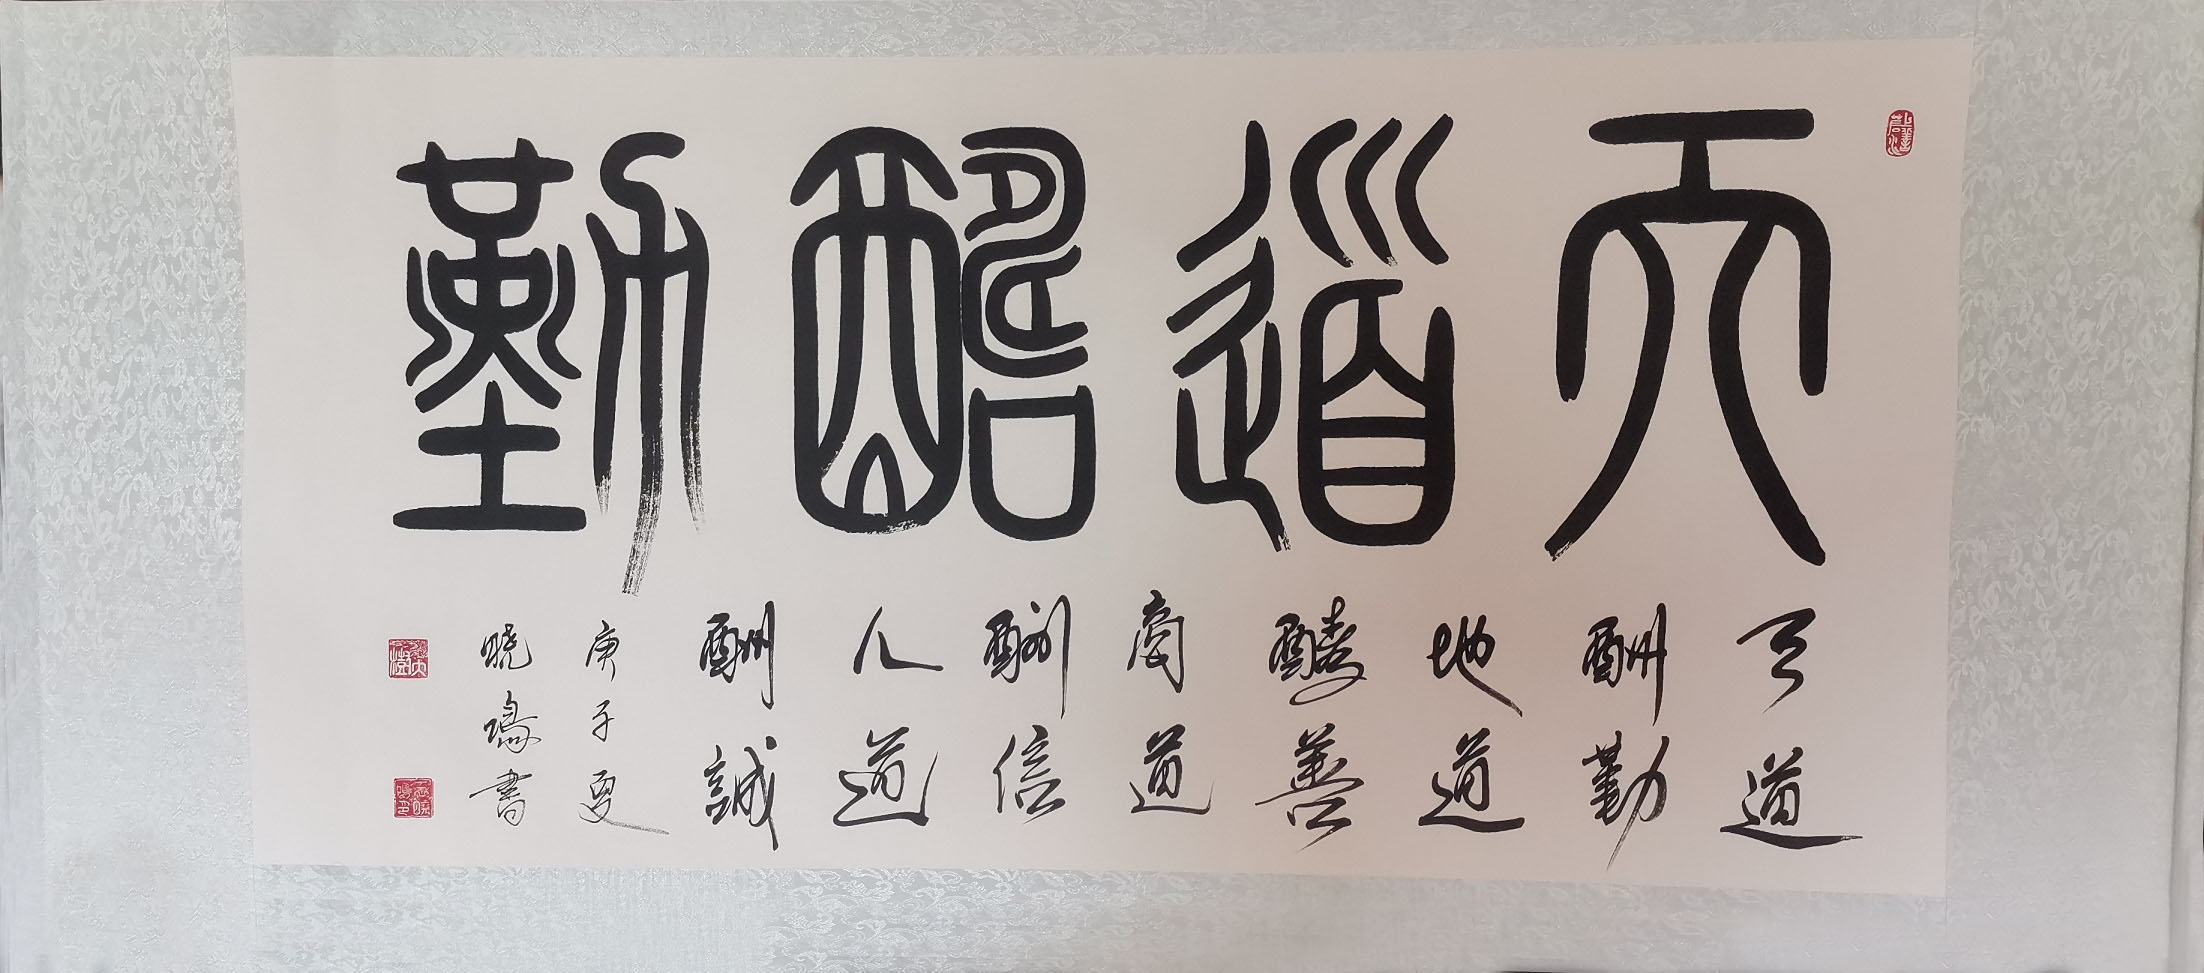 天道酬勤
天道
酬勤
地道
酬善
商道
酬信
人道
酬誠
庚子夏
曉鳴書
上善若水